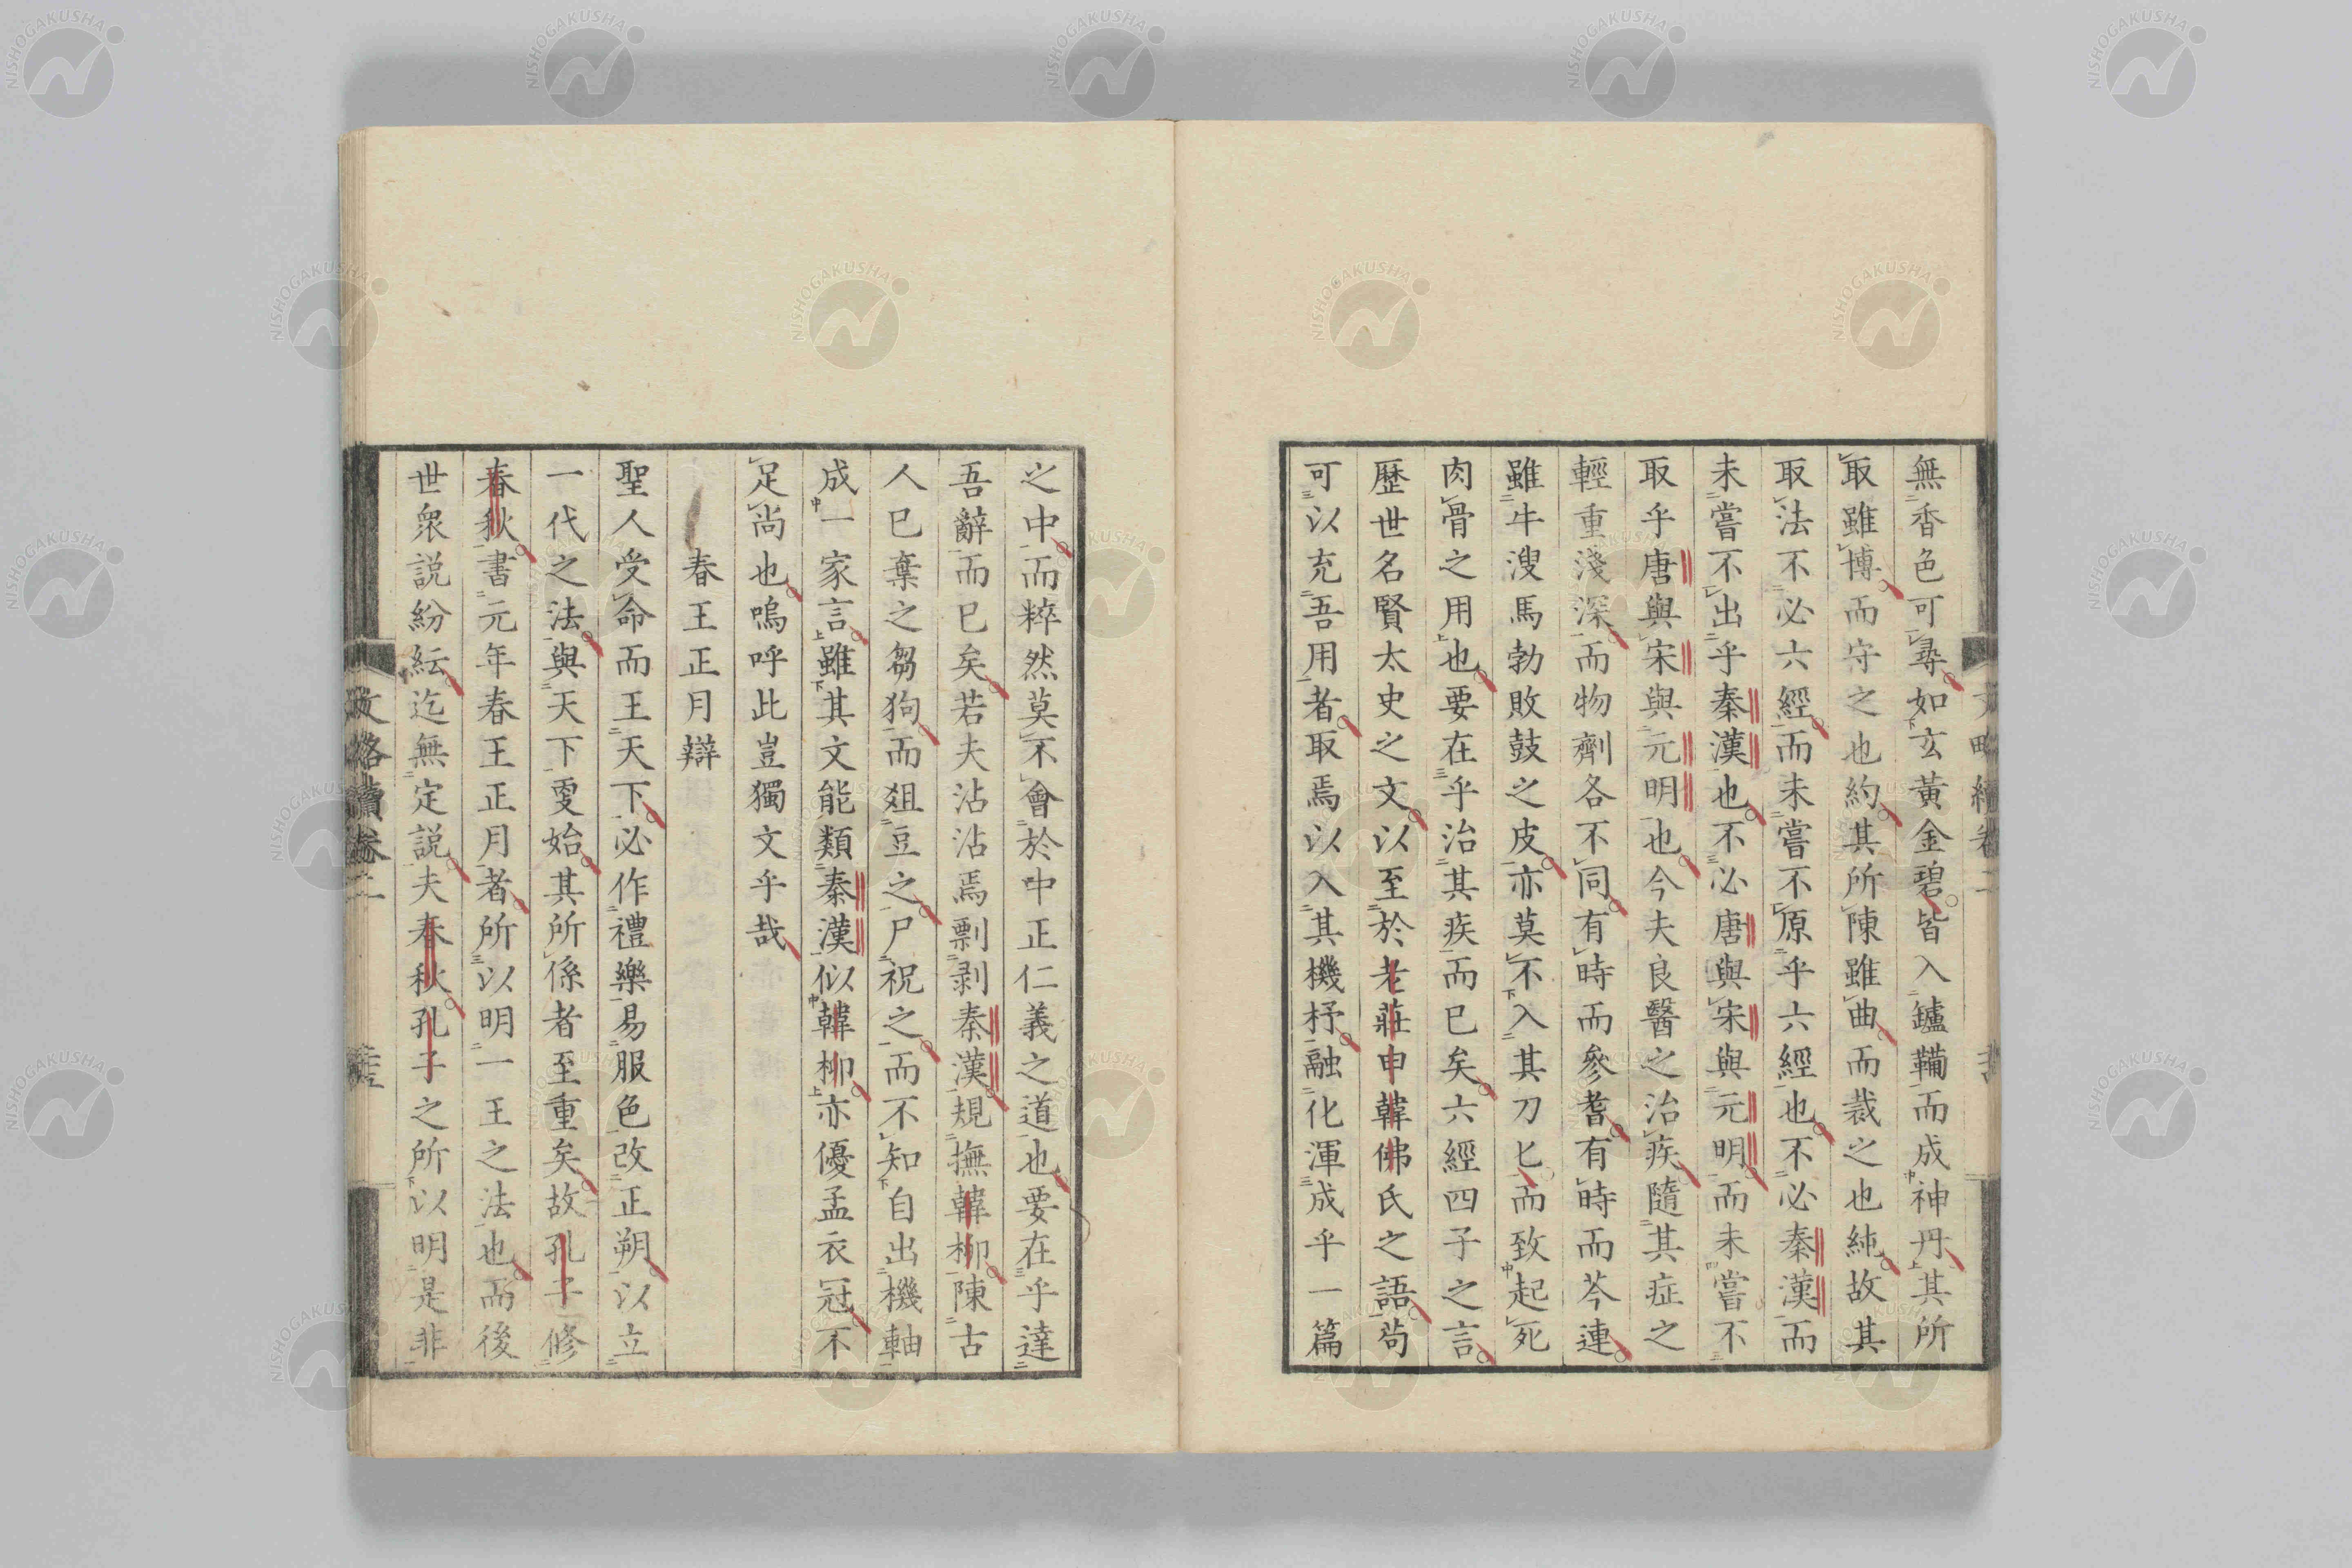 無香色可尋如玄黃金碧皆入鑪鞴而成神丹其所
取雖博而守之也約其所陳雖曲而裁之也純故其
取法不必六經而未嘗不原乎六經也不必秦漢而
未嘗不出乎秦漢也不必唐與宋與元明而未嘗不
取乎唐與宋與元明也今夫良醫之治疾隨其症之
輕重淺深而物劑各不同有時而參耆有時而芩連
雖牛溲馬勃敗鼓之皮亦莫不入其刀匕而致起死
肉骨之用也要在乎治其疾而已矣六經四子之言
歷世名賢太史之文以至於老莊申韓佛氏之語苟
可以充吾用者取焉以入其機杼融化渾成乎一篇
之中而粹然莫不會於中正仁義之道也要在乎達
吾辭而已矣若夫沾沾焉剽剥秦漢規撫韓柳陳古
人已棄之芻狗而俎豆之尸祝之而不知自出機軸
成一家言雖其文能類秦漢似韓柳亦優孟衣冠不
足尚也嗚呼此豈獨文乎哉
春王正月辯
聖人受命而王天下必作禮樂易服色改正朔以立
一代之法與天下更始其所係者至重矣故孔子修
春秋書元年春王正月者所以明一王之法也而後
世衆説紛紜迄無定説夫春秋孔子之所以明是非
文略續卷二
NISHOGAKUSHA